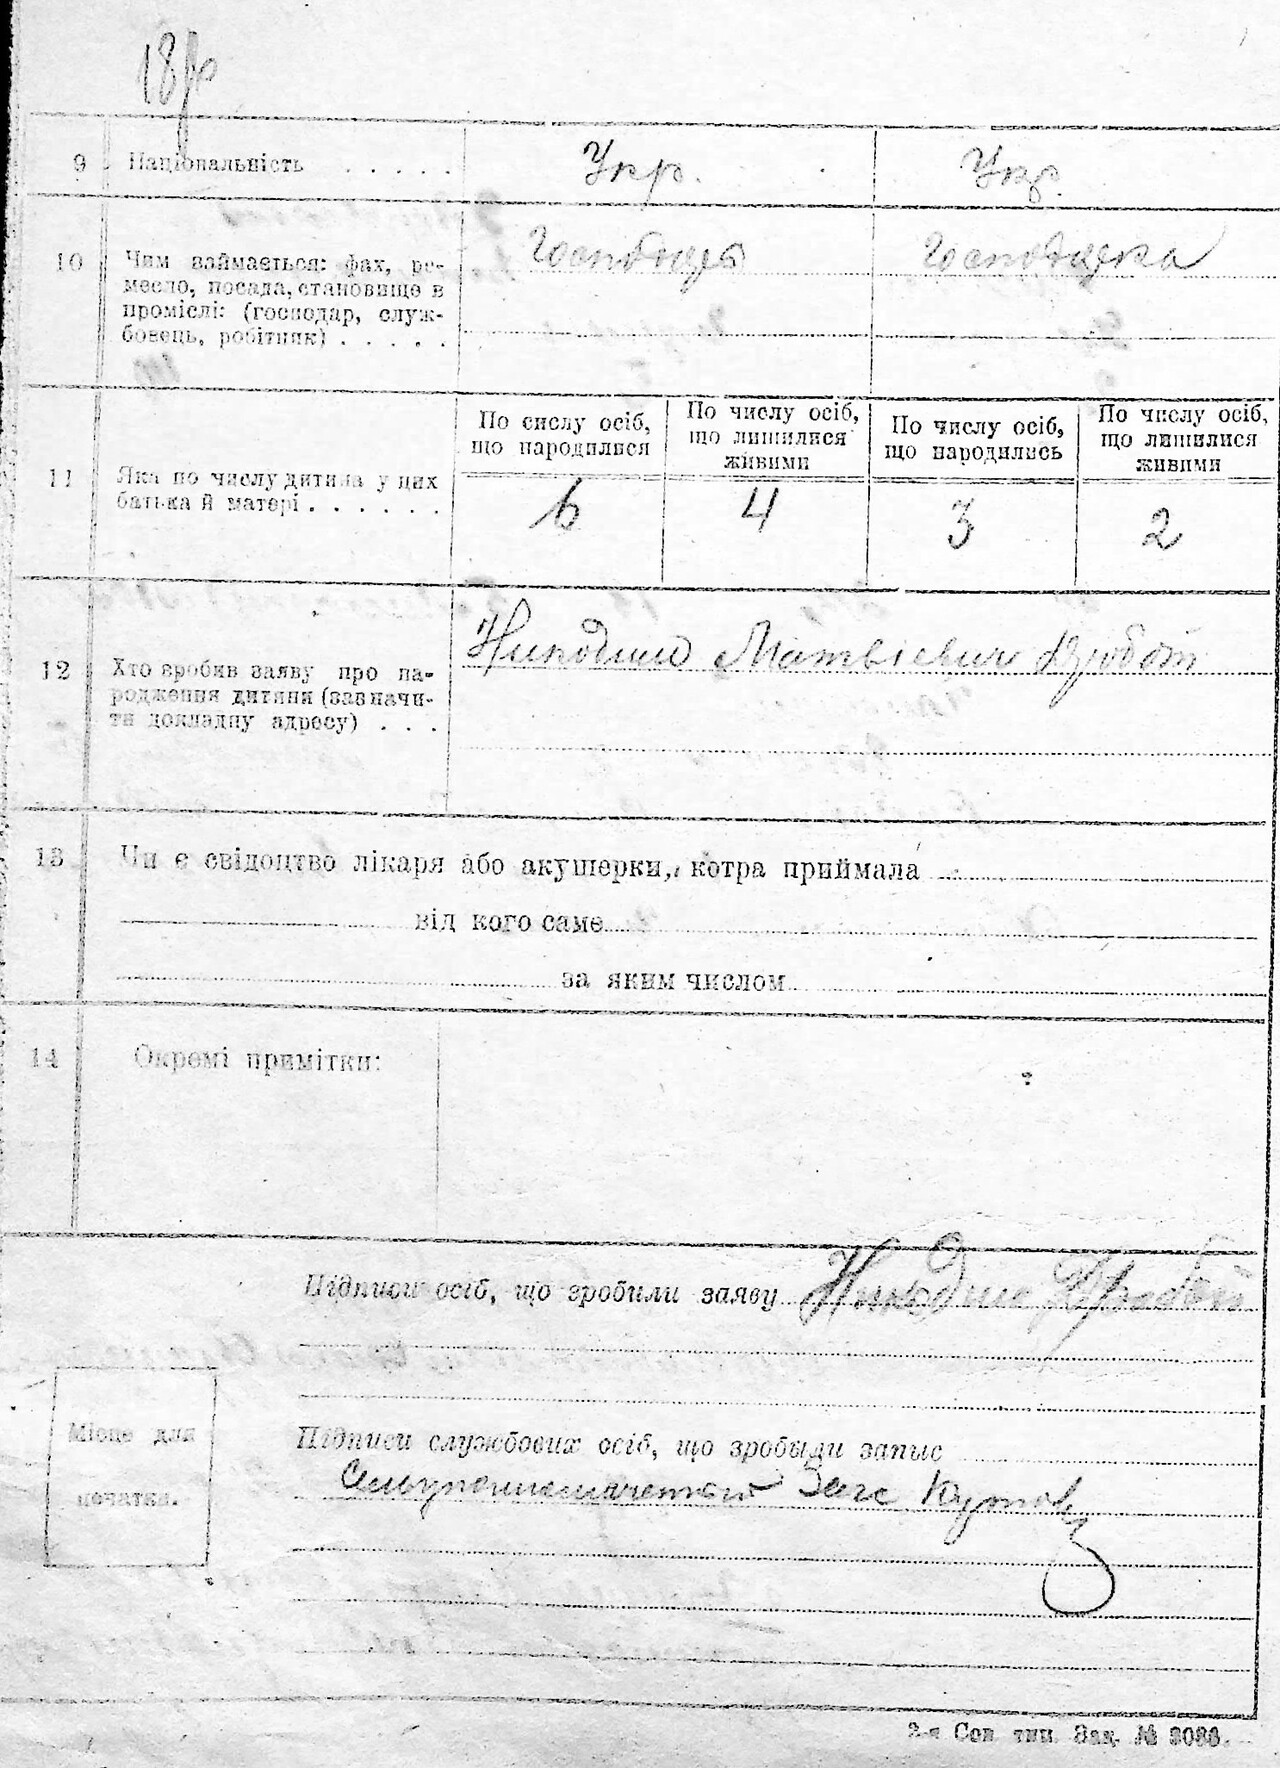 9 Національність . . . . . Укр. Укр.
10 Чим взаймається: фах, ре-
месло, посада, становище в
проміслі: (господар, служ-
бовець, робітник) . . . . .
По числу осіб,
що народилися
По числу осіб,
що лишилися
живими
По числу осіб,
що народились
По числу осіб,
що лишилися
живими
11 Яка по числу дитина у цих
батька й матері . . . . . .
6 4 3 2
12 Хто зробив заяву про на-
родження дитяни (зазначи-
ти докладну адресу) . . .
Никодим Матвієвич
13 Чи є свідоцтво лікаря або акушерки, котра приймала
від кого саме
за яким числом
14 Окремі примітки:
Підписи осіб, що зробили заяву Никодим
Підписи службових осіб, що зробыли запыс
Загс
Місце для
печатки.
2-я Сов тип. Зак. № 3086.